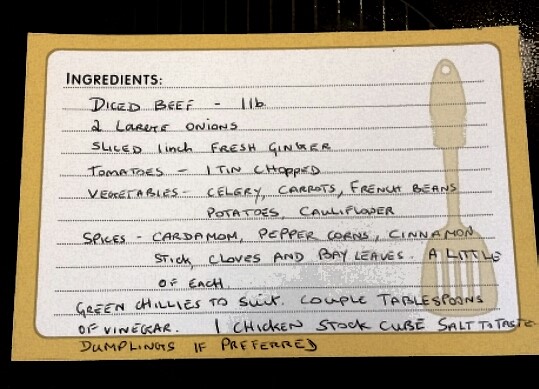 INGREDIENTS:
DICED BEEF - 1lb
2 LARGE ONIONS
SLICED 1inch FRESH GINGER
TOMATOES - 1 TIN CHOPPED
VEGETABLES - CELERY, CARROTS, FRENCH BEANS
POTATOES, CAULIFLOWER
SPICES - CARDAMOM, PEPPER CORNS, CINNAMON
STICK, CLOVES AND BAY LEAVES. A LITTLE
OF EACH.
GREEN CHILLIES TO SUIT. COUPLE TABLESPOONS
OF VINEGAR. 1 CHICKEN STOCK CUBE SALT TO TASTE
DUMPLINGS IF PREFERRED